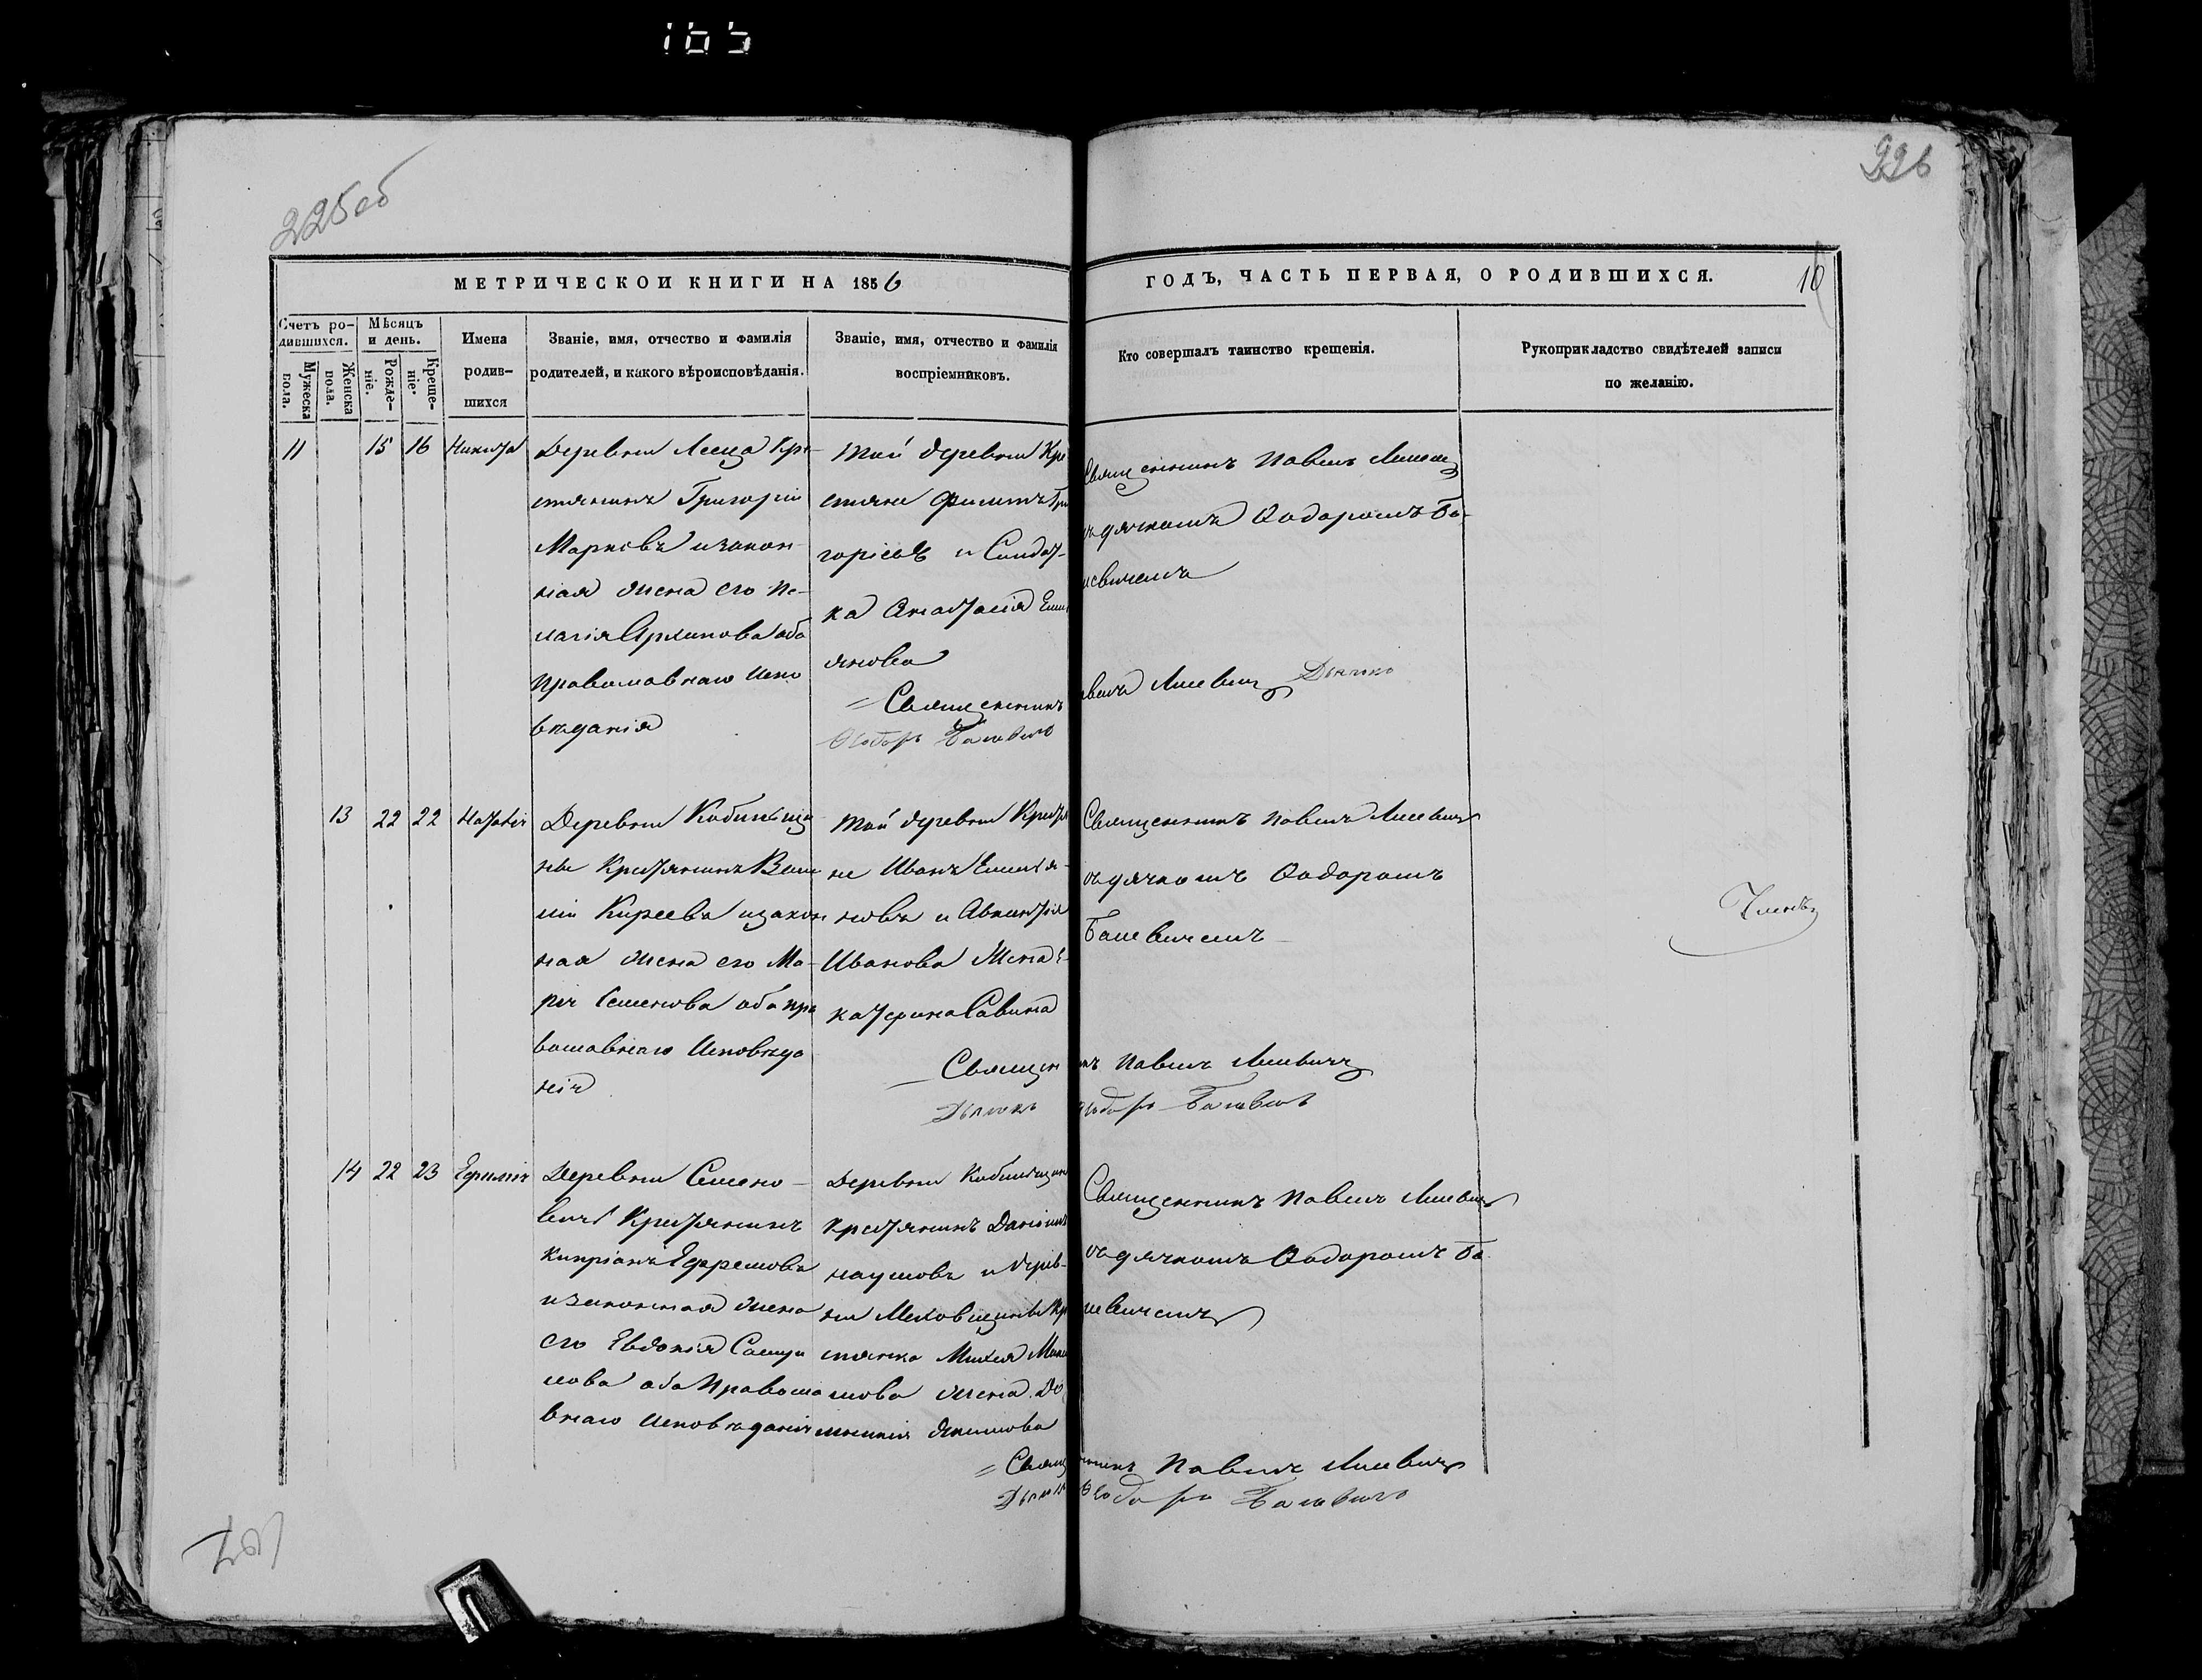 165
225об
226
МЕТРИЧЕСКОЙ КНИГИ НА 1856
ГОДЪ, ЧАСТЬ ПЕРВАЯ, О РОДИВШИХСЯ.
10
Счетъ ро-
дившихся.
Мужеска
пола.
Женска
пола.
Мѣсяцъ
и день.
Рожде-
ніе.
Креще-
ніе.
Имена
родив-
шихся
Званіе, имя, отчество и фамилія
родителей, и какого вѣроисповѣданія.
Званіе, имя, отчество и фамилія
воспріемниковъ.
Кто совершалъ таинство крещенія.
Рукоприкладство свидѣтелей записи
по желанію.
11
15
16
Никита
Деревни Кре-
стянинъ Григорій
Марковъ изакон-
ная жена его Пе-
лагія оба
Православнаго Испо
вѣданія
той деревни Кре
стяне Филипъ Гри
горіевъ и Солдат-
ка Анастасія Еми
янова
Священникъ Павелъ
съ дячкомъ Ѳодоромъ Ба-
шевичемъ
= Священникъ
авелъ Дячокъ
Ѳеодоръ
13
22
22
Наталія
Деревни
ны Крестянинъ Васи
лій Киреевъ изакон
ная жена его Ма-
рія Семенова оба пра
вославнаго Исповѣда
нія
той деревни Крестя
не Иванъ Емилія-
новъ и
Иванова Жена Е-
катерина Савина
Священникъ Павелъ
съ дячкомъ Ѳодоромъ
Башевичемъ
Членъ
Священ
къ Павелъ
Дячокъ
Ѳеодоръ
14
22
23
Ефимія
Деревни Семено-
вичъ Крестянинъ
Кипріанъ Ефремовъ
изаконная жена
его Евдокія Самуи
лова оба Правосла
внаго Исповѣданія
Деревни
Крестянинъ Даніилъ
Наумовъ и дерев-
ни Кр
стянка Макси
мова жена До
мникія Якимова
Священникъ Павелъ
съ дячкомъ Ѳодоромъ Ба
шевичемъ
= Священникъ Павелъ
Дячокъ Ѳеодоръ